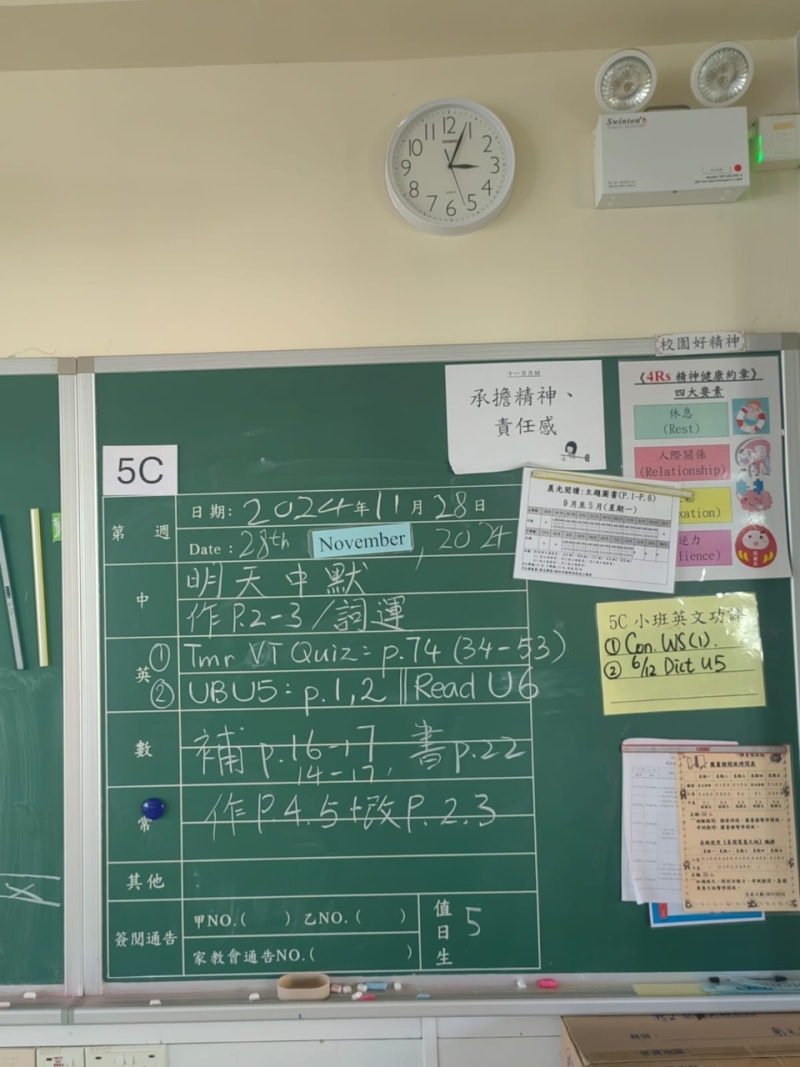 12 1 2 3 4 5 6 7 8 9 10 11
Swinton
校園好精神
十一月月訓
承擔精神、
責任感
《4Rs 精神健康約章》
四大要素
休息
(Rest)
人際關係
(Relationship)
xation)
逆力
lience)
晨光閱讀:主題圖書(P.1-P.6)
9月至5月(星期一)
5C
第 週
日期: 2024年11月28日
Date: 28th November, 2024
中
明天中默
作P.2-3/詞運
英
① Tmr VT Quiz: p.74 (34-53)
② UBU5: p.1,2 || Read U6
數
補p.16-17 書p.22
14-17,
常
作P.4.5+改P.2.3
其他
簽閱通告
甲NO.( ) 乙NO.( )
家教會通告NO.( )
值日生
5
5C 小班英文功課
① Con. WS(1).
② 6/12 Dict U5
圖書館開放時間表